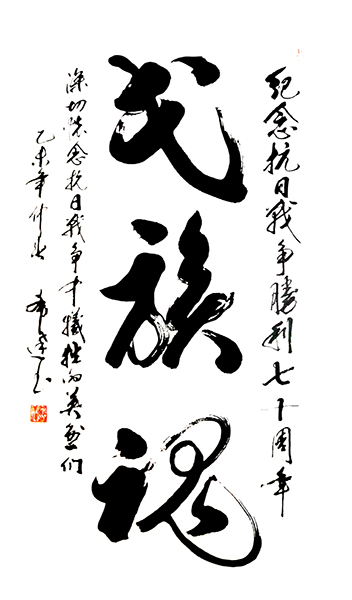 紀念抗日戰争勝利七十周年
民族魂
深切怀念抗日戰争中犧牲的英烈们
乙未年仲